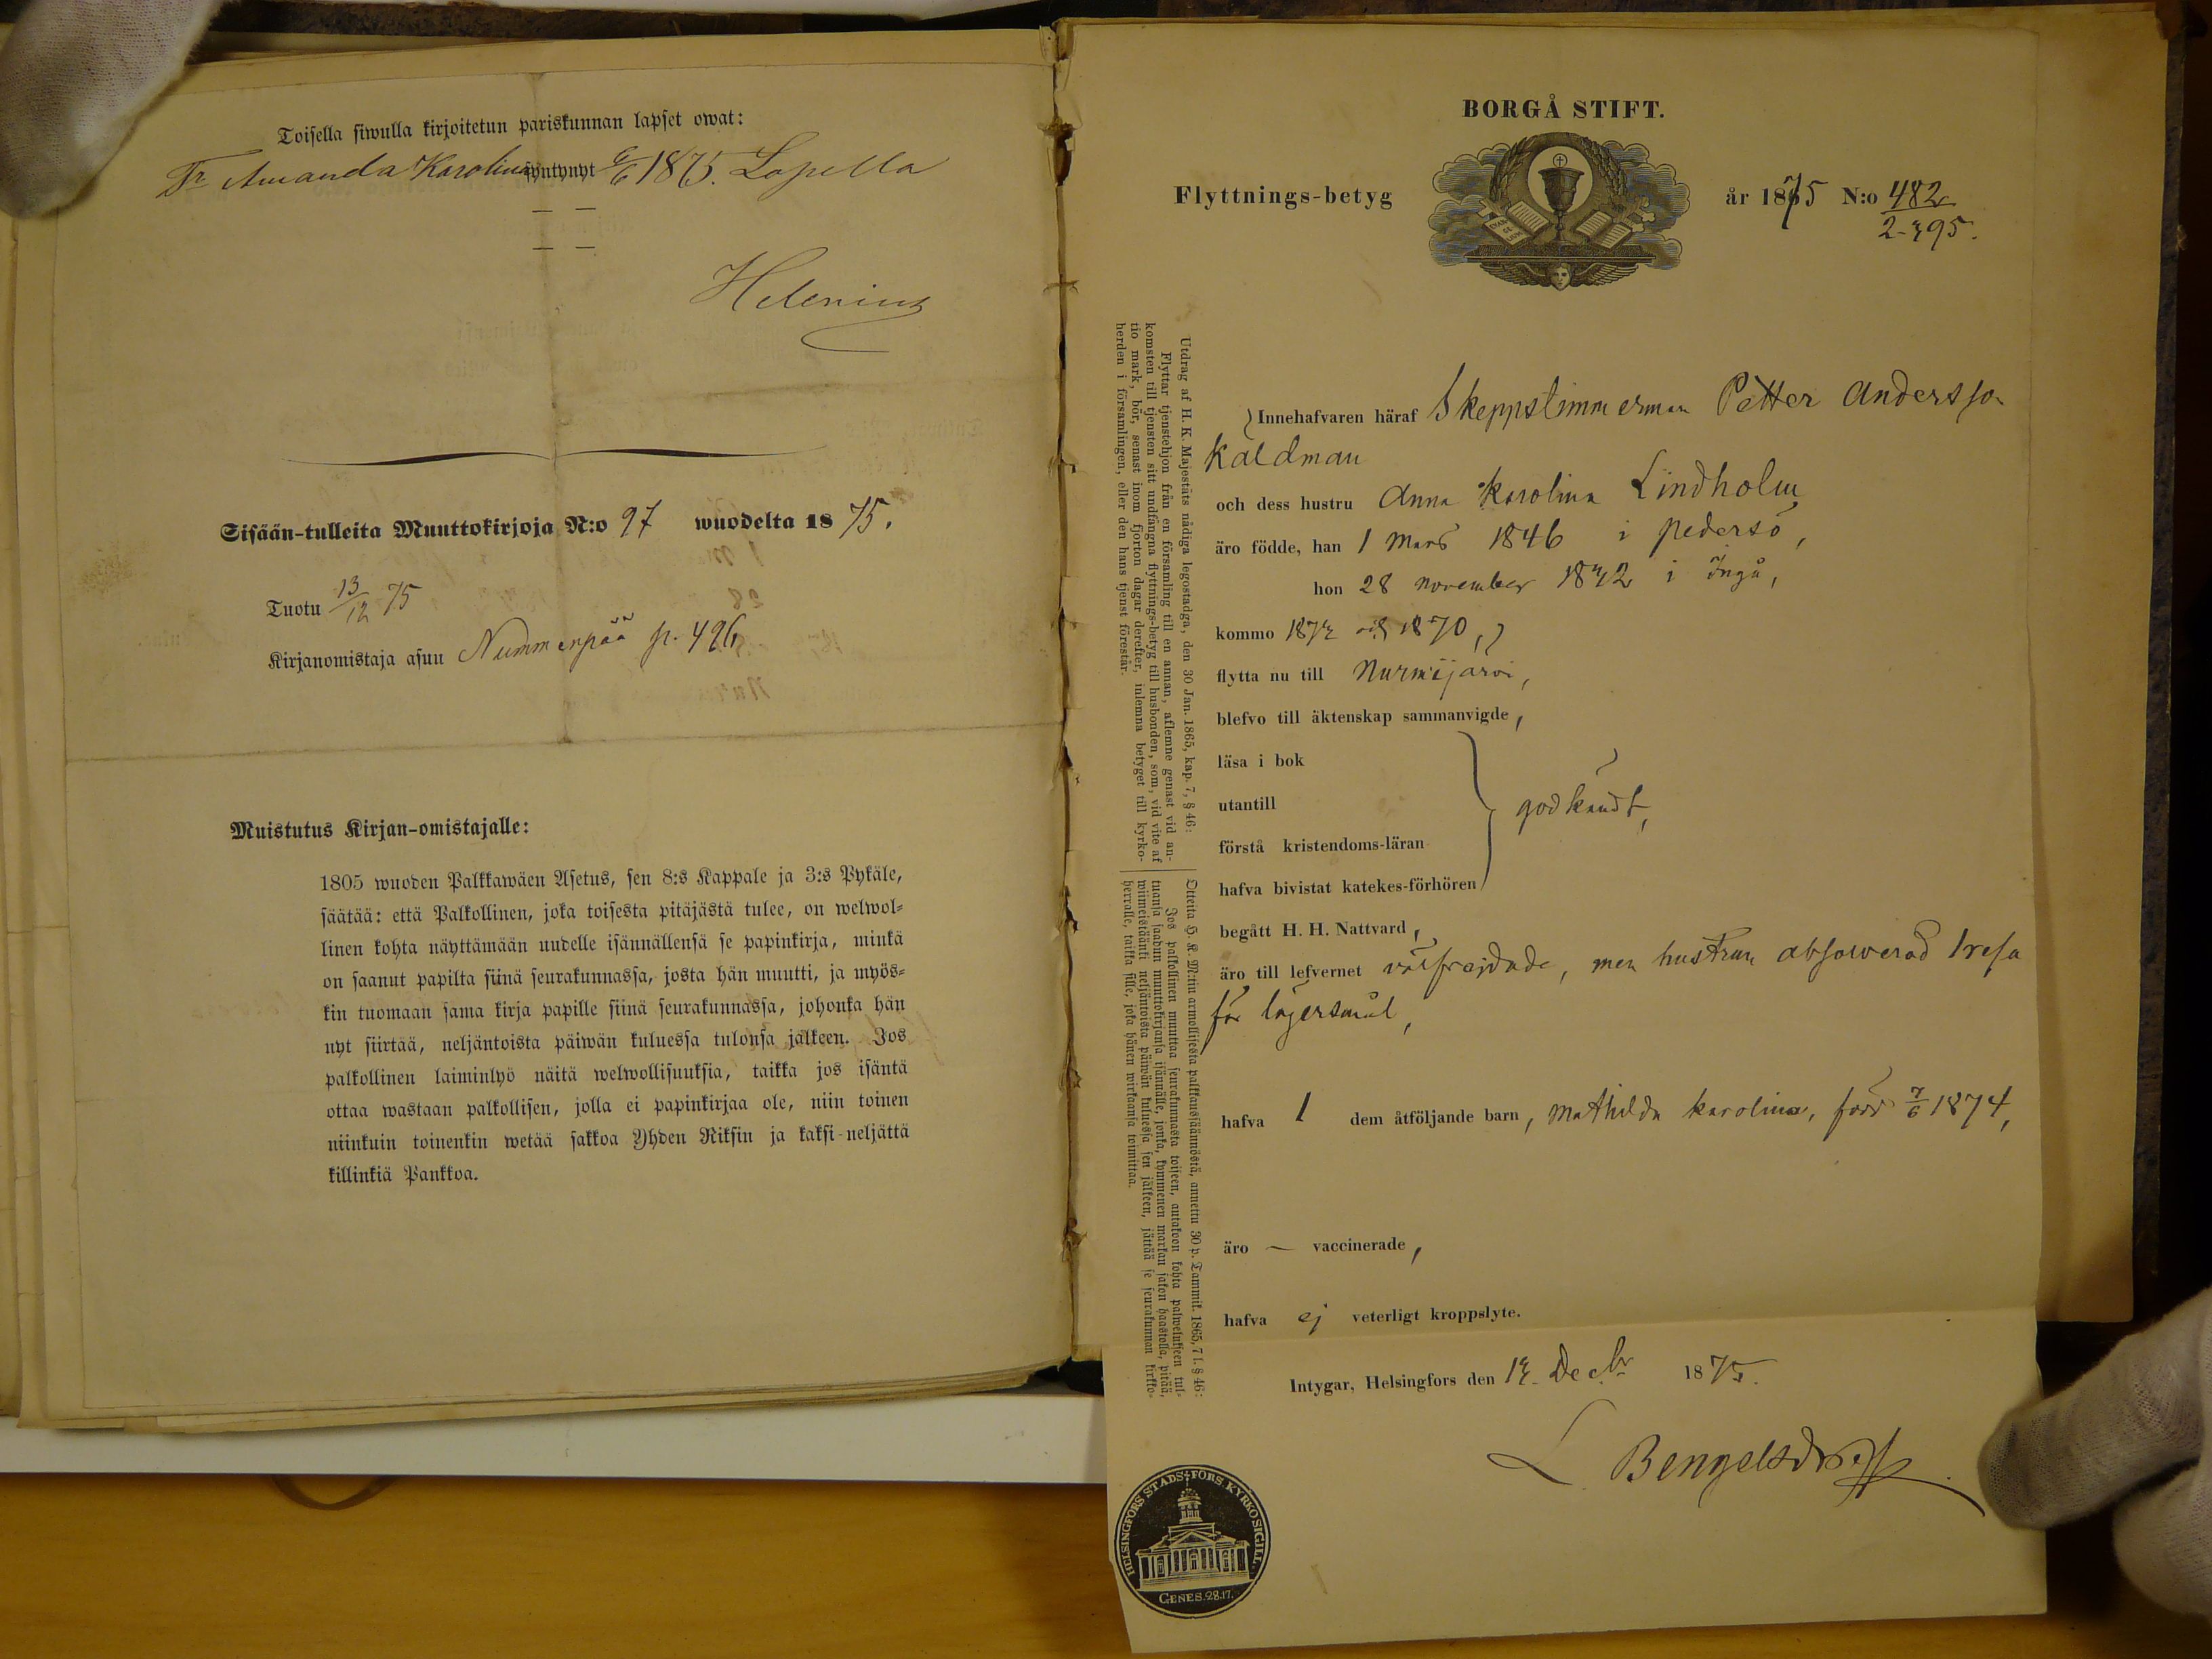 Toisella siwulla kirjoitetun pariskunnan lapset owat:
Tr Amanda Karolina syntynyt 6/6 1875. Lopella
— —
— —
Helenius
Sisään-tulleita Muuttokirjoja N:o 97 wuodelta 1875.
Tuotu 13/12 75
Kirjanomistaja asuu Nummenpää p. 496
Muistutus Kirjan-omistajalle:
1805 wuoden Palkkawäen Asetus, sen 8:s Kappale ja 3:s Pykäle,
säätää: että Palkollinen, joka toisesta pitäjästä tulee, on welwol-
linen kohta näyttämään uudelle isännällensä se papinkirja, minkä
on saanut papilta siinä seurakunnassa, josta hän muutti, ja myös-
kin tuomaan sama kirja papille siinä seurakunnassa, johonka hän
nyt siirtää, neljäntoista päiwän kuluessa tulonsa jälkeen. Jos
palkollinen laiminlyö näitä welwollisuuksia, taikka jos isäntä
ottaa wastaan palkollisen, jolla ei papinkirjaa ole, niin toinen
niinkuin toinenkin wetää sakkoa Yhden Riksin ja kaksi-neljättä
killinkiä Pankkoa.
BORGÅ STIFT.
Flyttnings-betyg
år 1875 N:o 482
2-395.
Utdrag af H. K. Majestäts nådiga legostadga, den 30 Jan. 1865, kap. 7, § 46:
Flyttar tjenstehjon från en församling till en annan, aflemne genast vid an-
komsten till tjensten sitt undfångna flyttnings-betyg till husbonden, som, vid vite af
tio mark, bör, senast inom fjorton dagar derefter, inlemna betyget till kyrko-
herden i församlingen, eller den hans tjenst förestår.
Otteita H. K. M:tin armollisesta palkkaussäännöstä, annettu 30 p. Tammik. 1865, 7 l. § 46:
Jos palkollinen muuttaa seurakunnasta toiseen, antakoon kohta palwelukseen tul-
tuansa saadun muuttokirjansa isännälle, jonka, kymmenen markan sakon haastolla, pitää,
wiimeistäänki neljäntoista päiwän kuluessa sen jälkeen, jättää se seurakunnan kirkko-
herralle, taikka sille, joka hänen wirkaansa toimittaa.
Innehafvaren häraf Skeppstimmerman Petter Andersson
Kaldman
och dess hustru Anna Karolina Lindholm
äro födde, han 1 Mars 1846 i Pedersö,
hon 28 november 1842 i Ingå,
kommo 1872 och 1870,
flytta nu till Nurmijärvi,
blefvo till äktenskap sammanvigde,
läsa i bok
utantill
godkändt,
förstå kristendoms-läran
hafva bivistat katekes-förhören
begått H. H. Nattvard,
äro till lefvernet välfrejdade, men hustrun absolverad 1 resa
för lägersmål,
hafva 1 dem åtföljande barn, Mathilda Karolina, född 7/6 1874,
äro — vaccinerade,
hafva ej veterligt kroppslyte.
Intygar, Helsingfors den 12 Decbr 1875.
L Bengelsdorff
HELSINGFORS STADS FÖRS. KYRKOSIGILL.
GENES. 28.17.